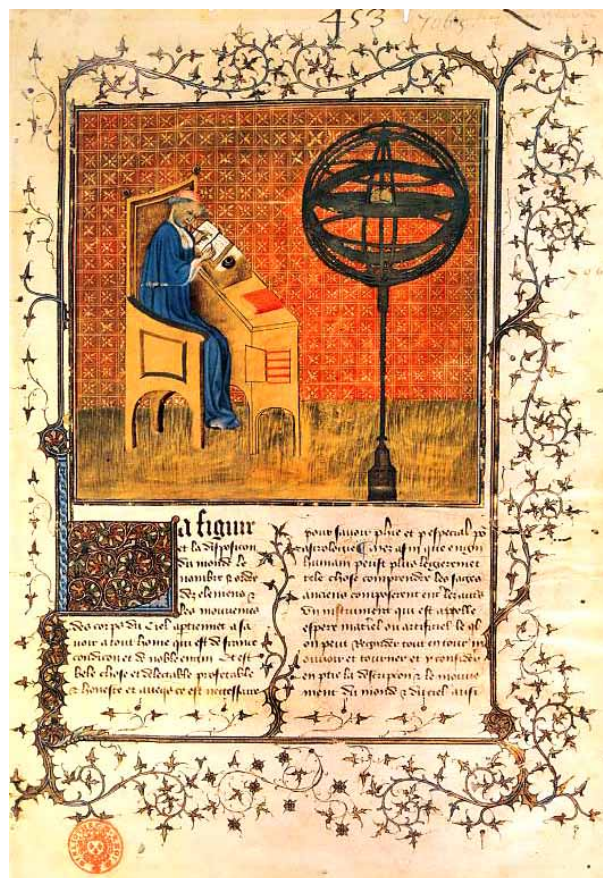 453
La figure
et la disposicion
du monde le
nombre & ordre
des elemens &
les mouvemens
des corps du ciel aptienent a sa
voir a tout home qui est de franche
condicion et de noble engin Et est
bele chose et delectable profetable
& honeste et avecqs ce est necessaire
pour savoir phie et p especial po
astrologie Car afin que engin
humain peust plus legerement
tele chose comprendre les sages
anciens composerent
un instrument qui est appelle
espere materiel ou artificiel le ql
on peut regarder tout en tour m
ouvoir et tourner et y considerer
en ptie la descripcion & le mouve
ment du monde & du ciel aussi